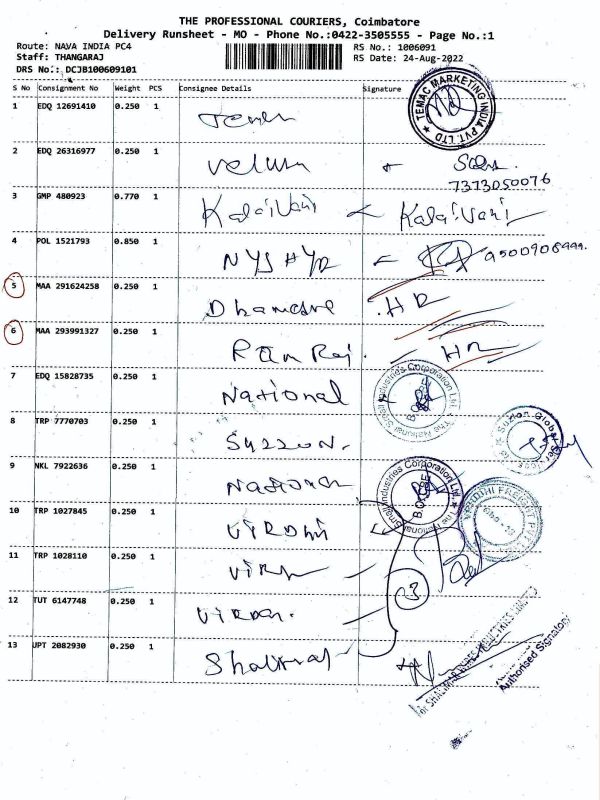 THE PROFESSIONAL COURIERS, Coimbatore
Delivery Runsheet - MO - Phone No.:0422-3505555 - Page No.:1
Route: NAVA INDIA PC4 RS No.: 1006091
Staff: THANGARAJ RS Date: 24-Aug-2022
DRS No.: DCJB100609101
S No Consignment No Weight PCS Consignee Details Signature
1 EDQ 12691410 0.250 1
TEMAC MARKETING INDIA PVT. LTD
2 EDQ 26316977 0.250 1
7373050076
3 GMP 480923 0.770 1 Kalaivani Kalaivani
4 POL 1521793 0.850 1 NYSHYR
5 MAA 291624258 0.250 1 HR
6 MAA 293991327 0.250 1 Ram Raj. HR
7 EDQ 15828735 0.250 1 National
The National Small Industries Corporation Ltd.
8 TRP 7770703 0.250 1 SUZZON.
Suzlon Global Services
9 NKL 7922636 0.250 1 National
The National Small Industries Corporation Ltd.
10 TRP 1027845 0.250 1 VIRDHI
11 TRP 1028110 0.250 1
3
12 TUT 6147748 0.250 1
13 UPT 2082930 0.250 1
Authorised Signatory